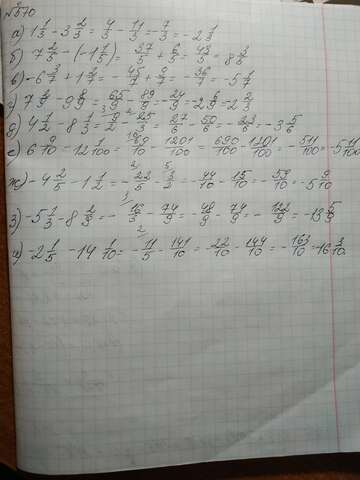 №570
а) 1 1/3 - 3 2/3 = 4/3 - 11/3 = - 7/3 = - 2 1/3
б) - 7 2/5 - (- 1 1/5) = - 37/5 + 6/5 = 43/5 = 8 3/5
в) - 6 3/7 + 1 2/7 = - 45/7 + 9/7 = - 36/7 = - 5 1/7
= - 24/9 = - 2 6/9 = - 2 2/3
д) 4 1/2 - 8 1/3 = 9/2 - 25/3 = 27/6 - 50/6 = - 23/6 = - 3 5/6
е) 6 9/10 - 12 1/100 = 69/10 - 1201/100 = 690/100 - 1201/100 = - 511/100 = - 5 11/100
ж) - 4 2/5 - 1 1/2 = - 22/5 - 3/2 = - 44/10 - 15/10 = - 59/10 = - 5 9/10
з) - 5 1/3 - 8 2/9 = - 16/3 - 74/9 = - 48/9 - 74/9 = - 122/9 = - 13 5/9
- 2 1/5 - 14 1/10 = - 11/5 - 141/10 = - 22/10